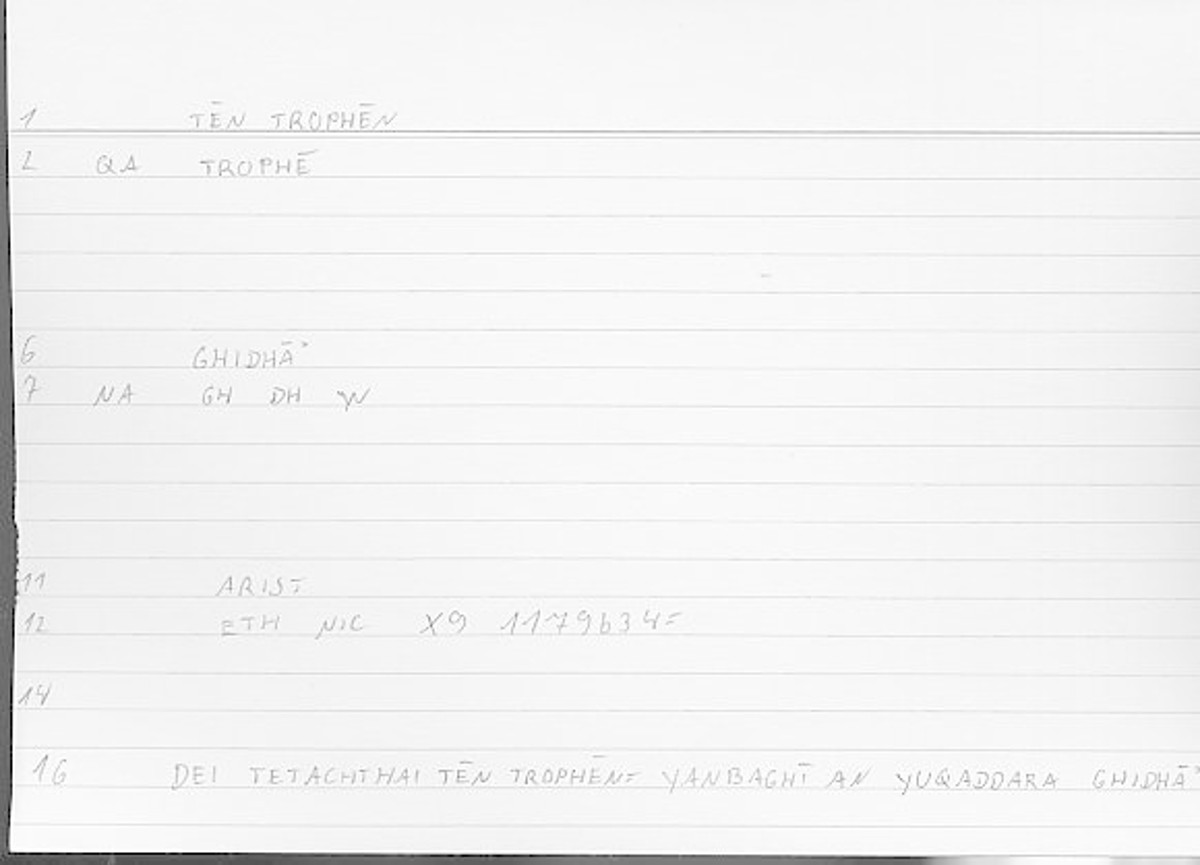 1 TĒN TROPHĒN
2 QA TROPHĒ
6 GHIDHĀʾ
7 NA GH DH W
11 ARIST
12 ETH NIC X9 1179b34=
14
16 DEI TETACHTHAI TĒN TROPHĒN= YANBAGHĪ AN YUQADDARA GHIDHĀʾ